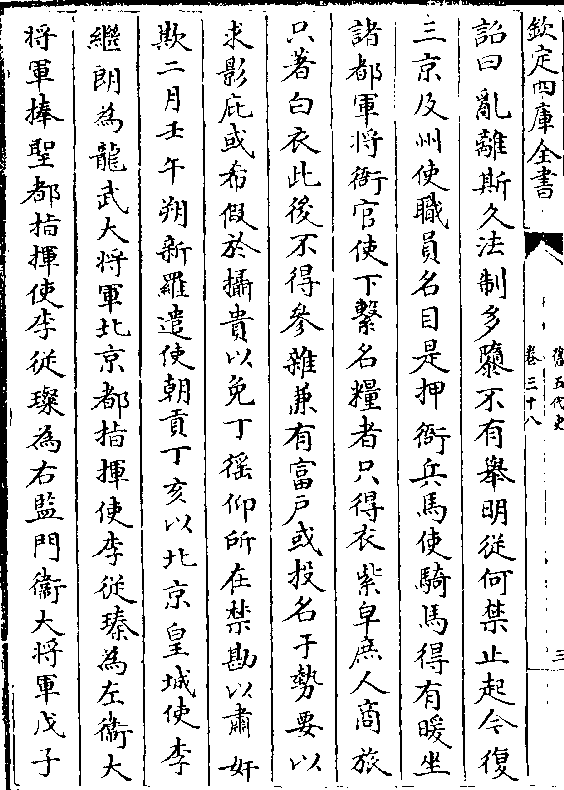 欽定四庫全書
舊五代史
卷三十八
三
詔曰亂離斯久法制多隳不有舉明從何禁止起今復
三京及州使職員名目是押衙兵馬使騎馬得有暖坐
諸都軍將衙官使下繫名糧者只得衣紫皁庶人商旅
只著白衣此後不得參雜兼有富戶或投名于勢要以
求影庇或希假於攝貴以免丁徭仰所在禁勘以肅奸
欺二月壬午朔新羅遣使朝貢丁亥以北京皇城使李
繼朗為龍武大將軍北京都指揮使李從臻為左衛大
將軍捧聖都指揮使李從璨為右監門衛大將軍戊子